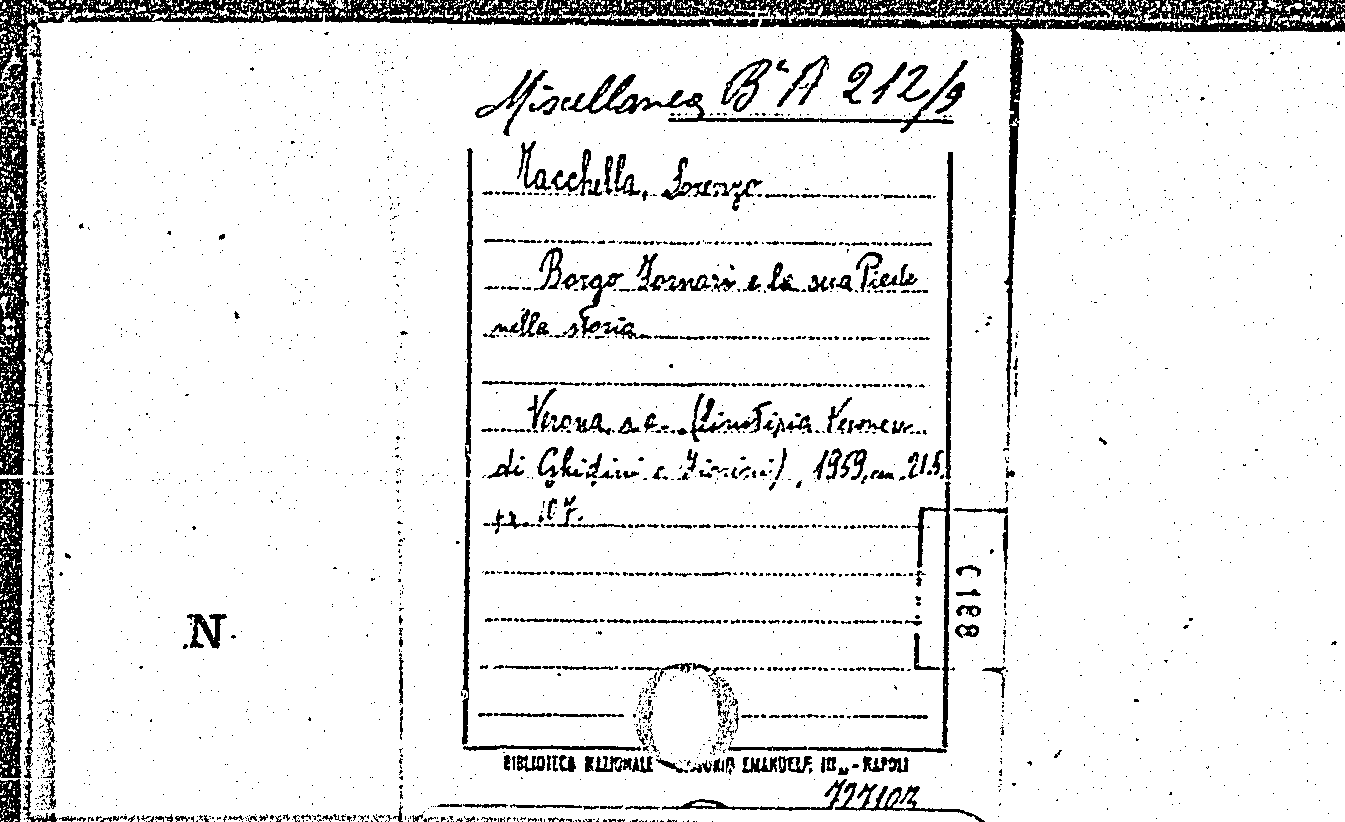 Miscellanea Bª A 212/9
Tacchella, Lorenzo
Borgo Fornari e la sua Pieve
nella storia
Verona, s. a. (Linotipia Verones
di Ghidini e Fiorini), 1959, cm. 21.5,
pp. 107.
0188
N
BIBLIOTECA NAZIONALE VITTORIO EMANUELE III - NAPOLI
727103